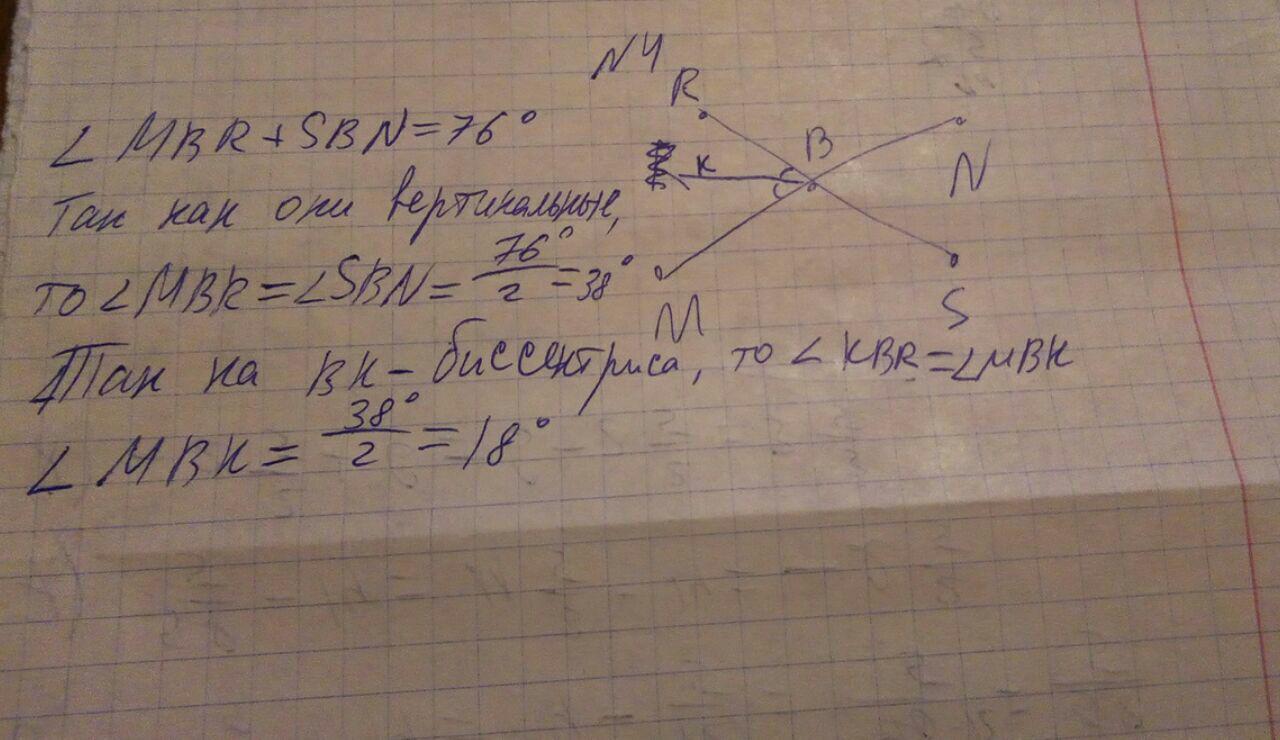 N4
∠ MBR + SBN = 76°
Так как они вертикальные,
то ∠MBR = ∠SBN = 76°/2 = 38°
Так ка BK - биссектриса, то ∠ KBR = ∠MBK
∠ MBK = 38°/2 = 18°
R
B
K
N
M
S